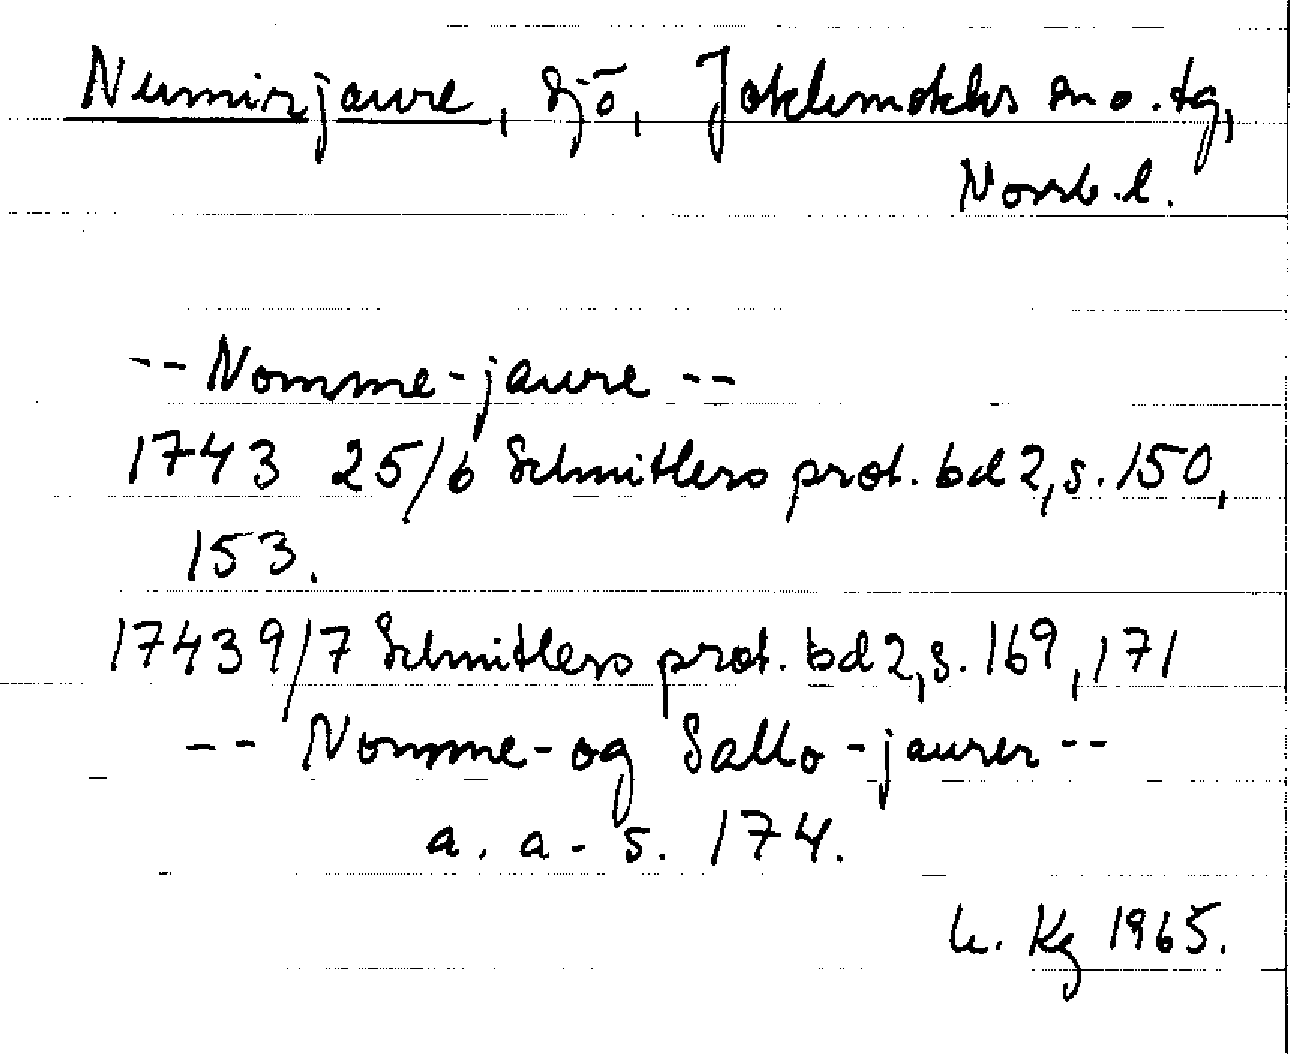 Numirjaure, sjö, Jokkmokks sn o. tg,
Norrb. l.
-- Nomme-jaure --
1743 25/6 Schnitlers prot. bd 2, s. 150,
153.
1743 9/7 Schnitlers prot. bd 2, s. 169, 171
-- Nomme- og Sallo-jaurer --
a. a. s. 174.
Kg 1965.